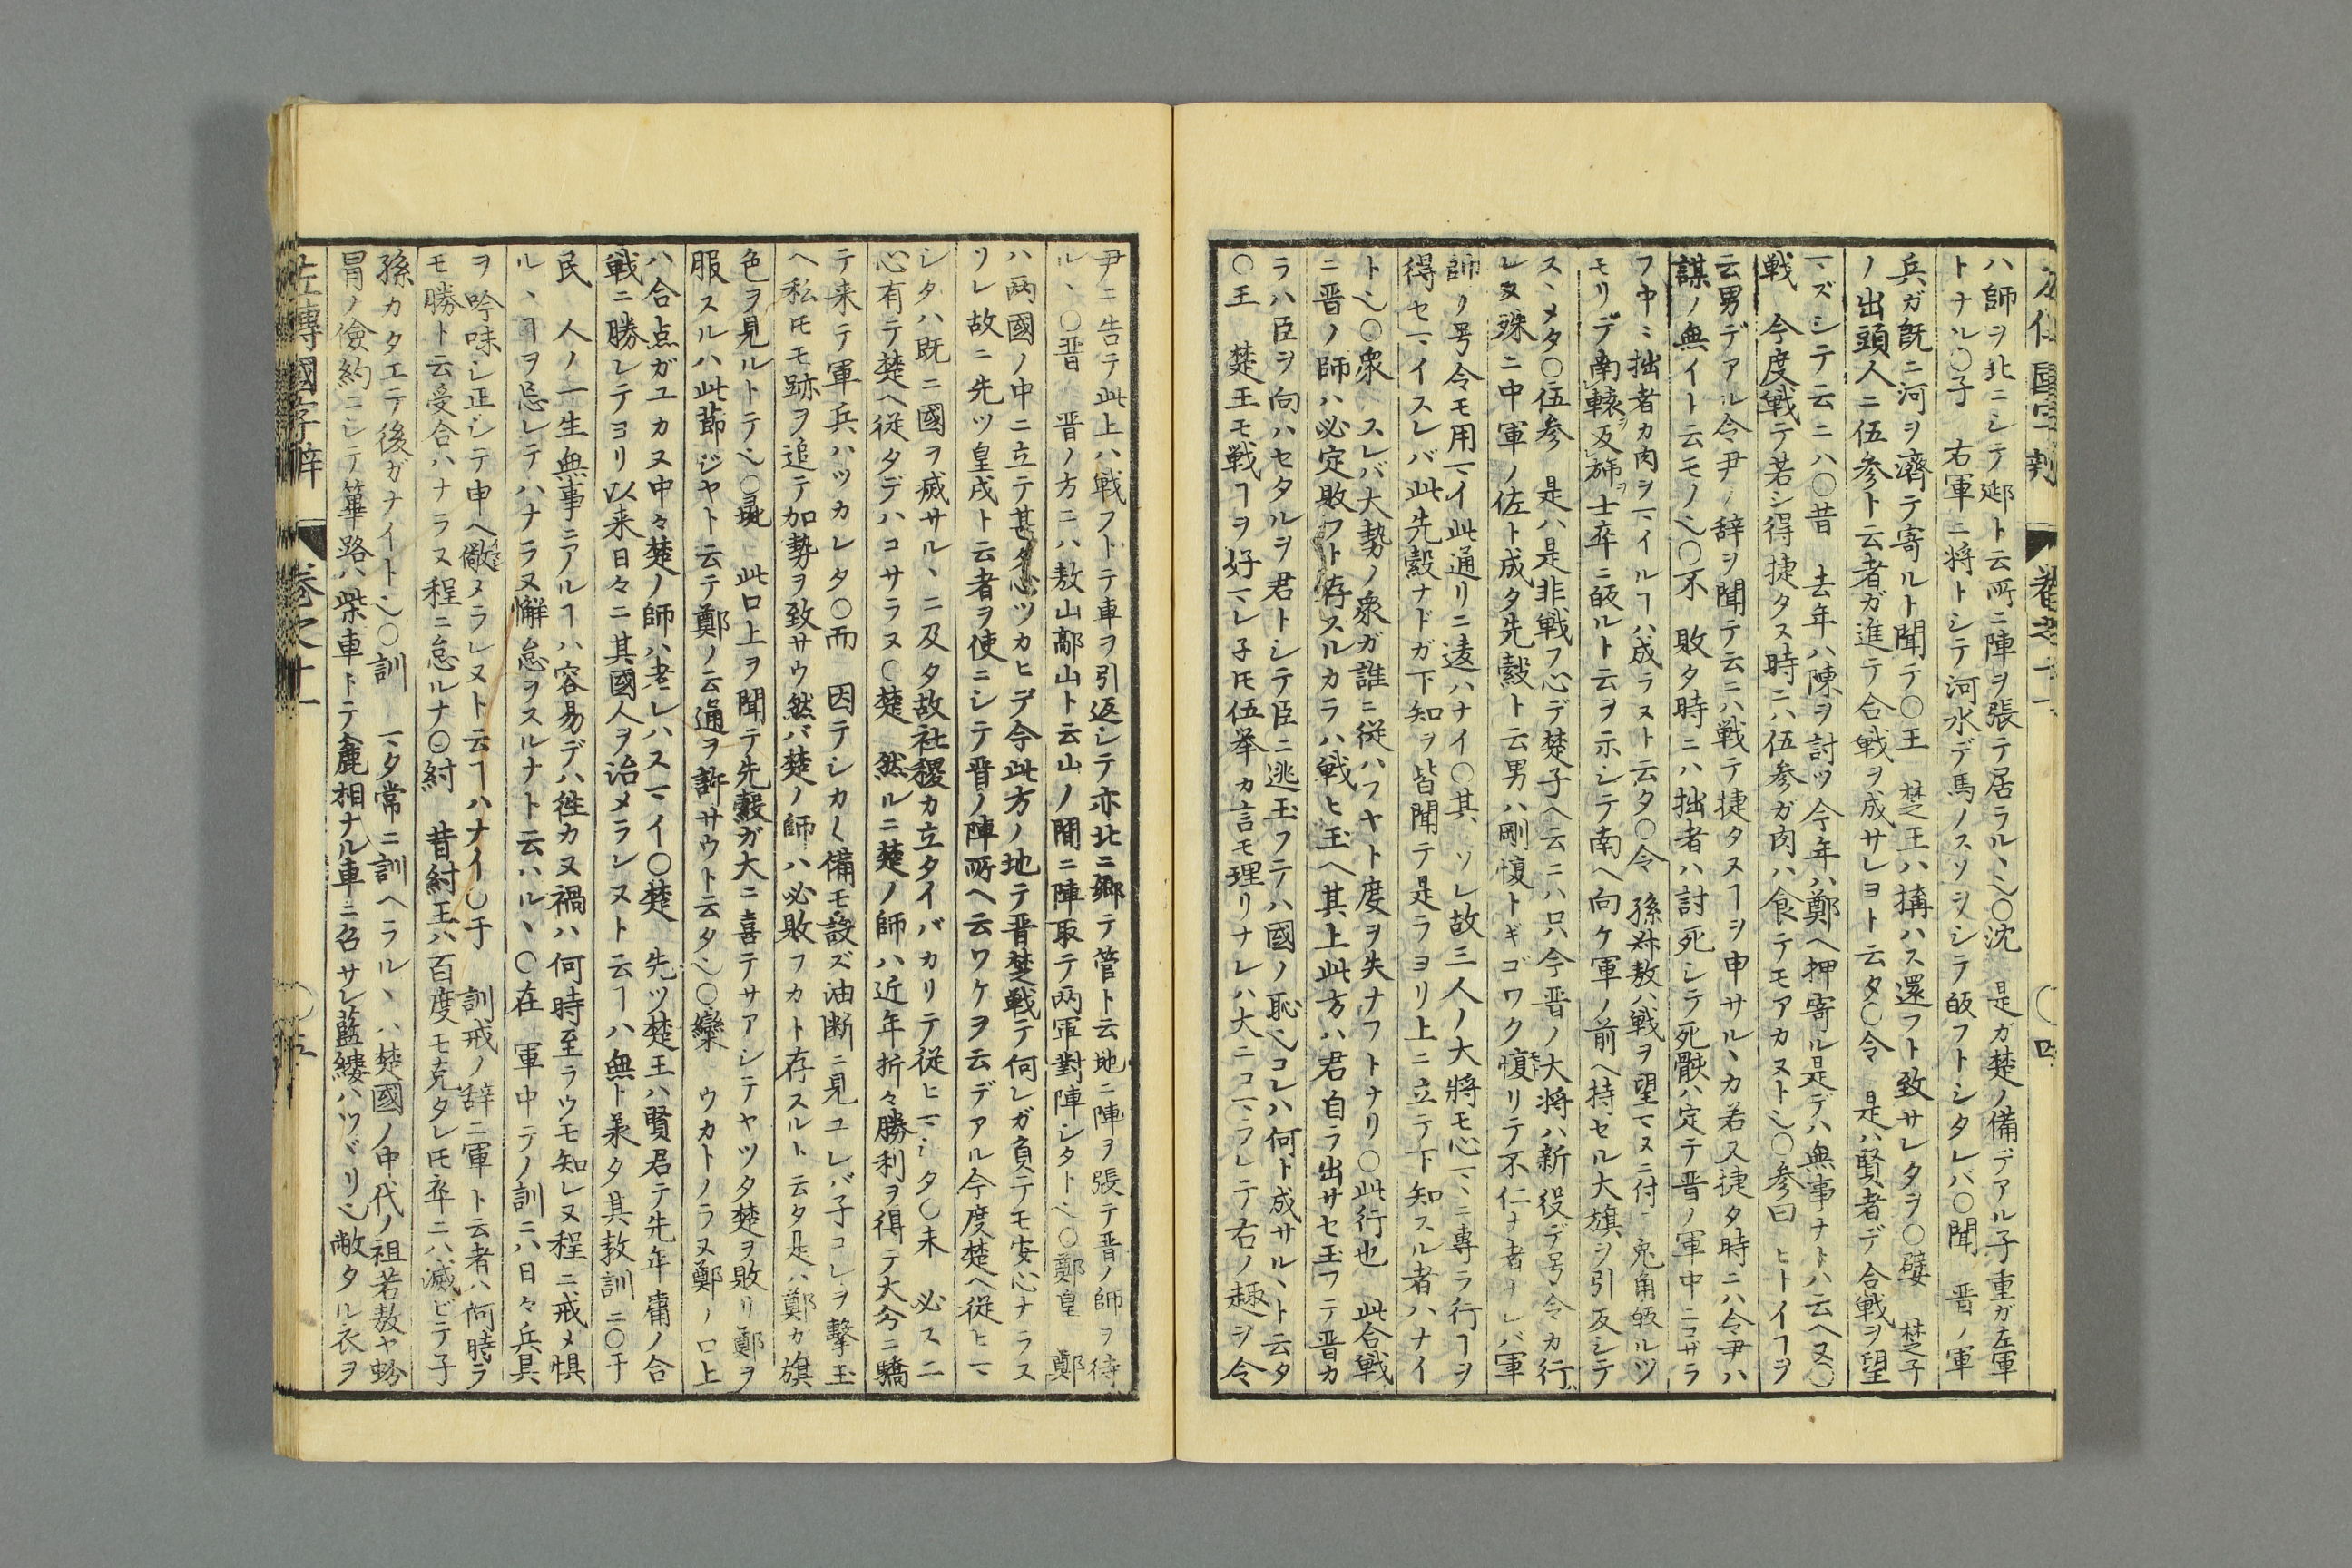 ハ師ヲ北ニシテ郔ト云所ニ陣ヲ張テ居ラル、也○沈 是ガ楚ノ備デアル子重ガ左軍
トナル○子 右軍ニ将トシテ河水デ馬ノスソヲシテ皈フトシタレバ○聞 晋ノ軍
兵ガ既ニ河ヲ濟テ寄ルト聞テ○王 楚王ハ搆ハス還フト致サレタヲ○嬖 楚子
ノ出頭人ニ伍参ト云者ガ進テ合戦ヲ成サレヨト云タ○令 是ハ賢者デ合戦ヲ望
マズシテ云ニハ○昔 去年ハ陳ヲ討ツ今年ハ鄭ヘ押寄ル是デハ無事ナトハ云ヘヌ○
戦 今度戦テ若シ得捷タヌ時ニハ伍参ガ肉ハ食テモアカヌト也○参曰 ヒトイフヿヲ
云男デアル令尹ノ辞ヲ聞テ云ニハ戦テ捷タヌヿヲ申サル、カ若又捷タ時ニハ令尹ハ
謀ノ無イト云モノ也○不 敗タ時ニハ拙者ハ討死シテ死骸ハ定テ晋ノ軍中ニコザラ
フ中ミ拙者カ肉ヲマイルヿハ成ラヌト云タ○令 孫叔敖ハ戦ヲ望マヌニ付 兎角皈ルツ
モリデ南轅ヲ反旆ヲ士卒ニ皈ルト云ヲ示シテ南ヘ向ケ軍ノ前ヘ持セル大旗ヲ引反シテ
ス、メタ○伍参 是ハ是非戦フ心デ楚子ヘ云ニハ只今晋ノ大将ハ新役デ号令カ行
レヌ殊ニ中軍ノ佐ト成タ先縠ト云男ハ剛愎トギゴワク愎リテ不仁ナ者ナレバ軍
師ノ号令モ用マイ此通リニ遠ハナイ○其 ソレ故三人ノ大将モ心マヽニ専ラ行ヿヲ
得セマイスレバ此先縠ナドガ下知ヲ皆聞テ是ラヨリ上ニ立テ下知スル者ハナイ
ト也○衆 スレバ大勢ノ衆ガ誰ニ従ハフヤト度ヲ失ナフトナリ○此行也 此合戦
ニ晋ノ師ハ必定敗フト存スルカラハ戦ヒ玉ヘ其上此方ハ君自ラ出サセ玉フテ晋カ
ラハ臣ヲ向ハセタルヲ君トシテ臣ニ逃玉フテハ國ノ恥也コレハ何ト成サル、ト云タ
○王 楚王モ戦ヿヲ好マレ子𪜈伍挙カ言モ理リナレハ大ニコマラレテ右ノ趣ヲ令
尹ニ告テ此上ハ戦フトテ車ヲ引返シテ亦北ニ郷テ管ト云地ニ陣ヲ張テ晋ノ師ヲ待
ル、○晋 晋ノ方ニハ敖山鄗山ト云山ノ間ニ陣取テ両軍對陣シタト也○鄭皇 鄭
ハ両國ノ中ニ立テ甚タ心ツカヒデ今此方ノ地テ晋楚戦テ何レガ負テモ安心ナラス
ソレ故ニ先ツ皇戌ト云者ヲ使ニシテ晋ノ陣所ヘ云ワケヲ云デアル今度楚ヘ従ヒマ
シタハ既ニ國ヲ滅サル、ニ及タ故社稷カ立タイバカリテ従ヒマシタ○未 必ス二
心有テ楚ヘ従タデハコサラヌ○楚 然ルニ楚ノ師ハ近年折々勝利ヲ得テ大分ニ驕
テ来テ軍兵ハツカレタ○而 因テシカ〱備モ設ズ油断ニ見ユレバ子コレヲ撃玉
ヘ私𪜈モ跡ヲ追テ加勢ヲ致サウ然バ楚ノ師ハ必敗フカト存スルト云タ是ハ鄭カ旗
色ヲ見ルトテ也○彘 此口上ヲ聞テ先縠ガ大ニ喜テサアシテヤツタ楚ヲ敗リ鄭ヲ
服スルハ此節ジヤト云テ鄭ノ云通ヲ許サウト云タ也○欒 ウカトノラヌ鄭ノ口上
ハ合点ガユカヌ中々楚ノ師ハ老レハスマイ○楚 先ツ楚王ハ賢君テ先年庸ノ合
戦ニ勝レテヨリ以来日々ニ其國人ヲ治メラレヌト云ヿハ無ト兼タ其教訓ニ○于
民 人ノ一生無事ニアルヿハ容易デハ徃カヌ禍ハ何時至ラウモ知レヌ程ニ戒メ惧
ル、ヿヲ忘レテハナラヌ懈怠ヲスルナト云ハル、○在 軍中テノ訓ニハ日々兵具
ヲ吟味シ正シテ申ヘ儆メラレヌト云ヿハナイ○于 訓戒ノ辞ニ軍ト云者ハ何時ラ
モ勝ト云受合ハナラヌ程ニ怠ルナ○紂 昔紂王ハ百度モ克タレ𪜈卒ニハ滅ビテ子
孫カタエテ後ガナイト也○訓 マタ常ニ訓ヘラル、ハ楚國ノ中代ノ祖若敖ヤ蚡
冒ノ儉約ニシテ篳路ハ柴車トテ麁相ナル車ニ召サレ藍縷ハツヾリ也敝タル衣ヲ
左傳國字辯 巻之十一 ○五